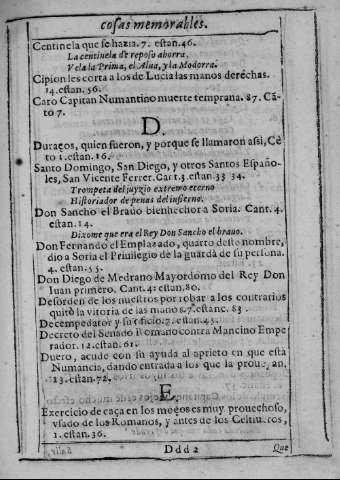 cosas memorables.
Centinela que se hazia. 7. estan. 46.
La centinela de reposo ahorra,
Vela la Prima, el Alua, y la Modorra.
Cipion les corta a los de Lucia las manos derechas.
14. estan. 56.
Caro Capitan Numantino muerte temprana. 87. Cã-
to 7.
D.
Duracos, quien fueron, y porque se llamaron assi, Cẽ
to 1. estan. 16.
Santo Domingo, San Diego, y otros Santos Españo-
les, San Vicente Ferrer. Cart. 3. estan. 33 34.
Trompeta del juyzio extremo eterno
Historiador de penas del infierno.
Don Sancho el Brauo bienhechor a Soria. Cant. 4.
estan. 14.
Dixome que era el Rey Don Sancho el brauo.
Don Fernando el Emplazado, quarto deste nombre,
dio a Soria el Priuilegio de la guarda de su persona.
4. estan. 55.
Don Diego de Medrano Mayordomo del Rey Don
Iuan primero. Cant. 4. estan. 80.
Desorden de los nuestros por robar a los contrarios
quitò la vitoria de las manos. 7. estanc. 83.
Decempedator y su oficio. 7. estan. 45.
Decreto del Senado Romano contra Mancino Empe
rador. 12. estan. 61.
Duero, acude con su ayuda al aprieto en que està
Numancia, dando entrada a los que la
13. estan. 72.
E.
Exercicio de caça en los moços es muy prouechoso,
vsado de los Romanos, y antes de los
1. estan. 36.
Ddd 2 Que